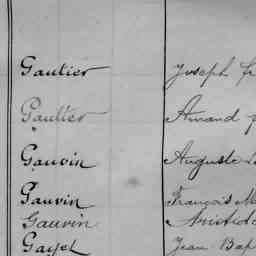 Gautier Joseph fr
Gautier Amand f
Gauvin Auguste
Gauvin François M
Gauvin Aristide
Gayet Jean Bap